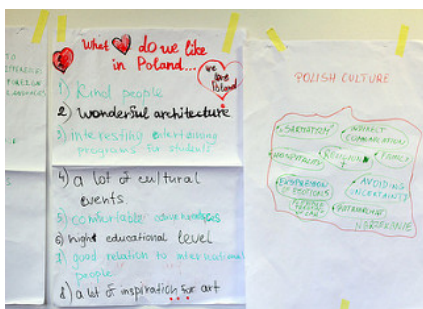 TO
FOREIGN
LANGUAGES
What do we like
in Poland....
we
love
Poland
1) Kind people
2) wonderful architecture
3) interesting entertaining
programs for students
4) a lot of cultural
events.
5) comfortable
6) hight educational level
7) good relation to international
people
8) a lot of inspiration for art
POLISH CULTURE
INDIRECT
COMMUNICATION
HOSPITALITY
RELIGION
FAMILY
EXPRESSION
OF EMOTIONS
AVOIDING
UNCERTAINTY
PATRIARCHAT